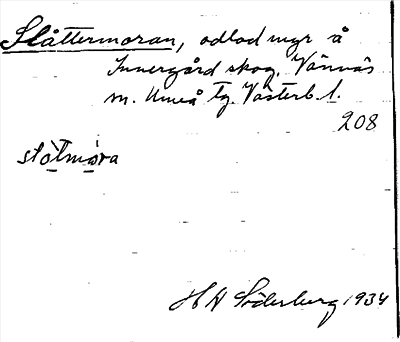 Slåttermoran, odlad myr å
Innergård skog, Vännäs
sn. Umeå tg. Västerb. l.
208
slòtmóra
H A Söderberg 1934